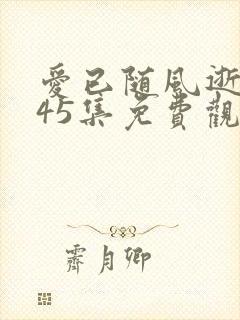 愛已随風逝
45集免費觀
霽月卿